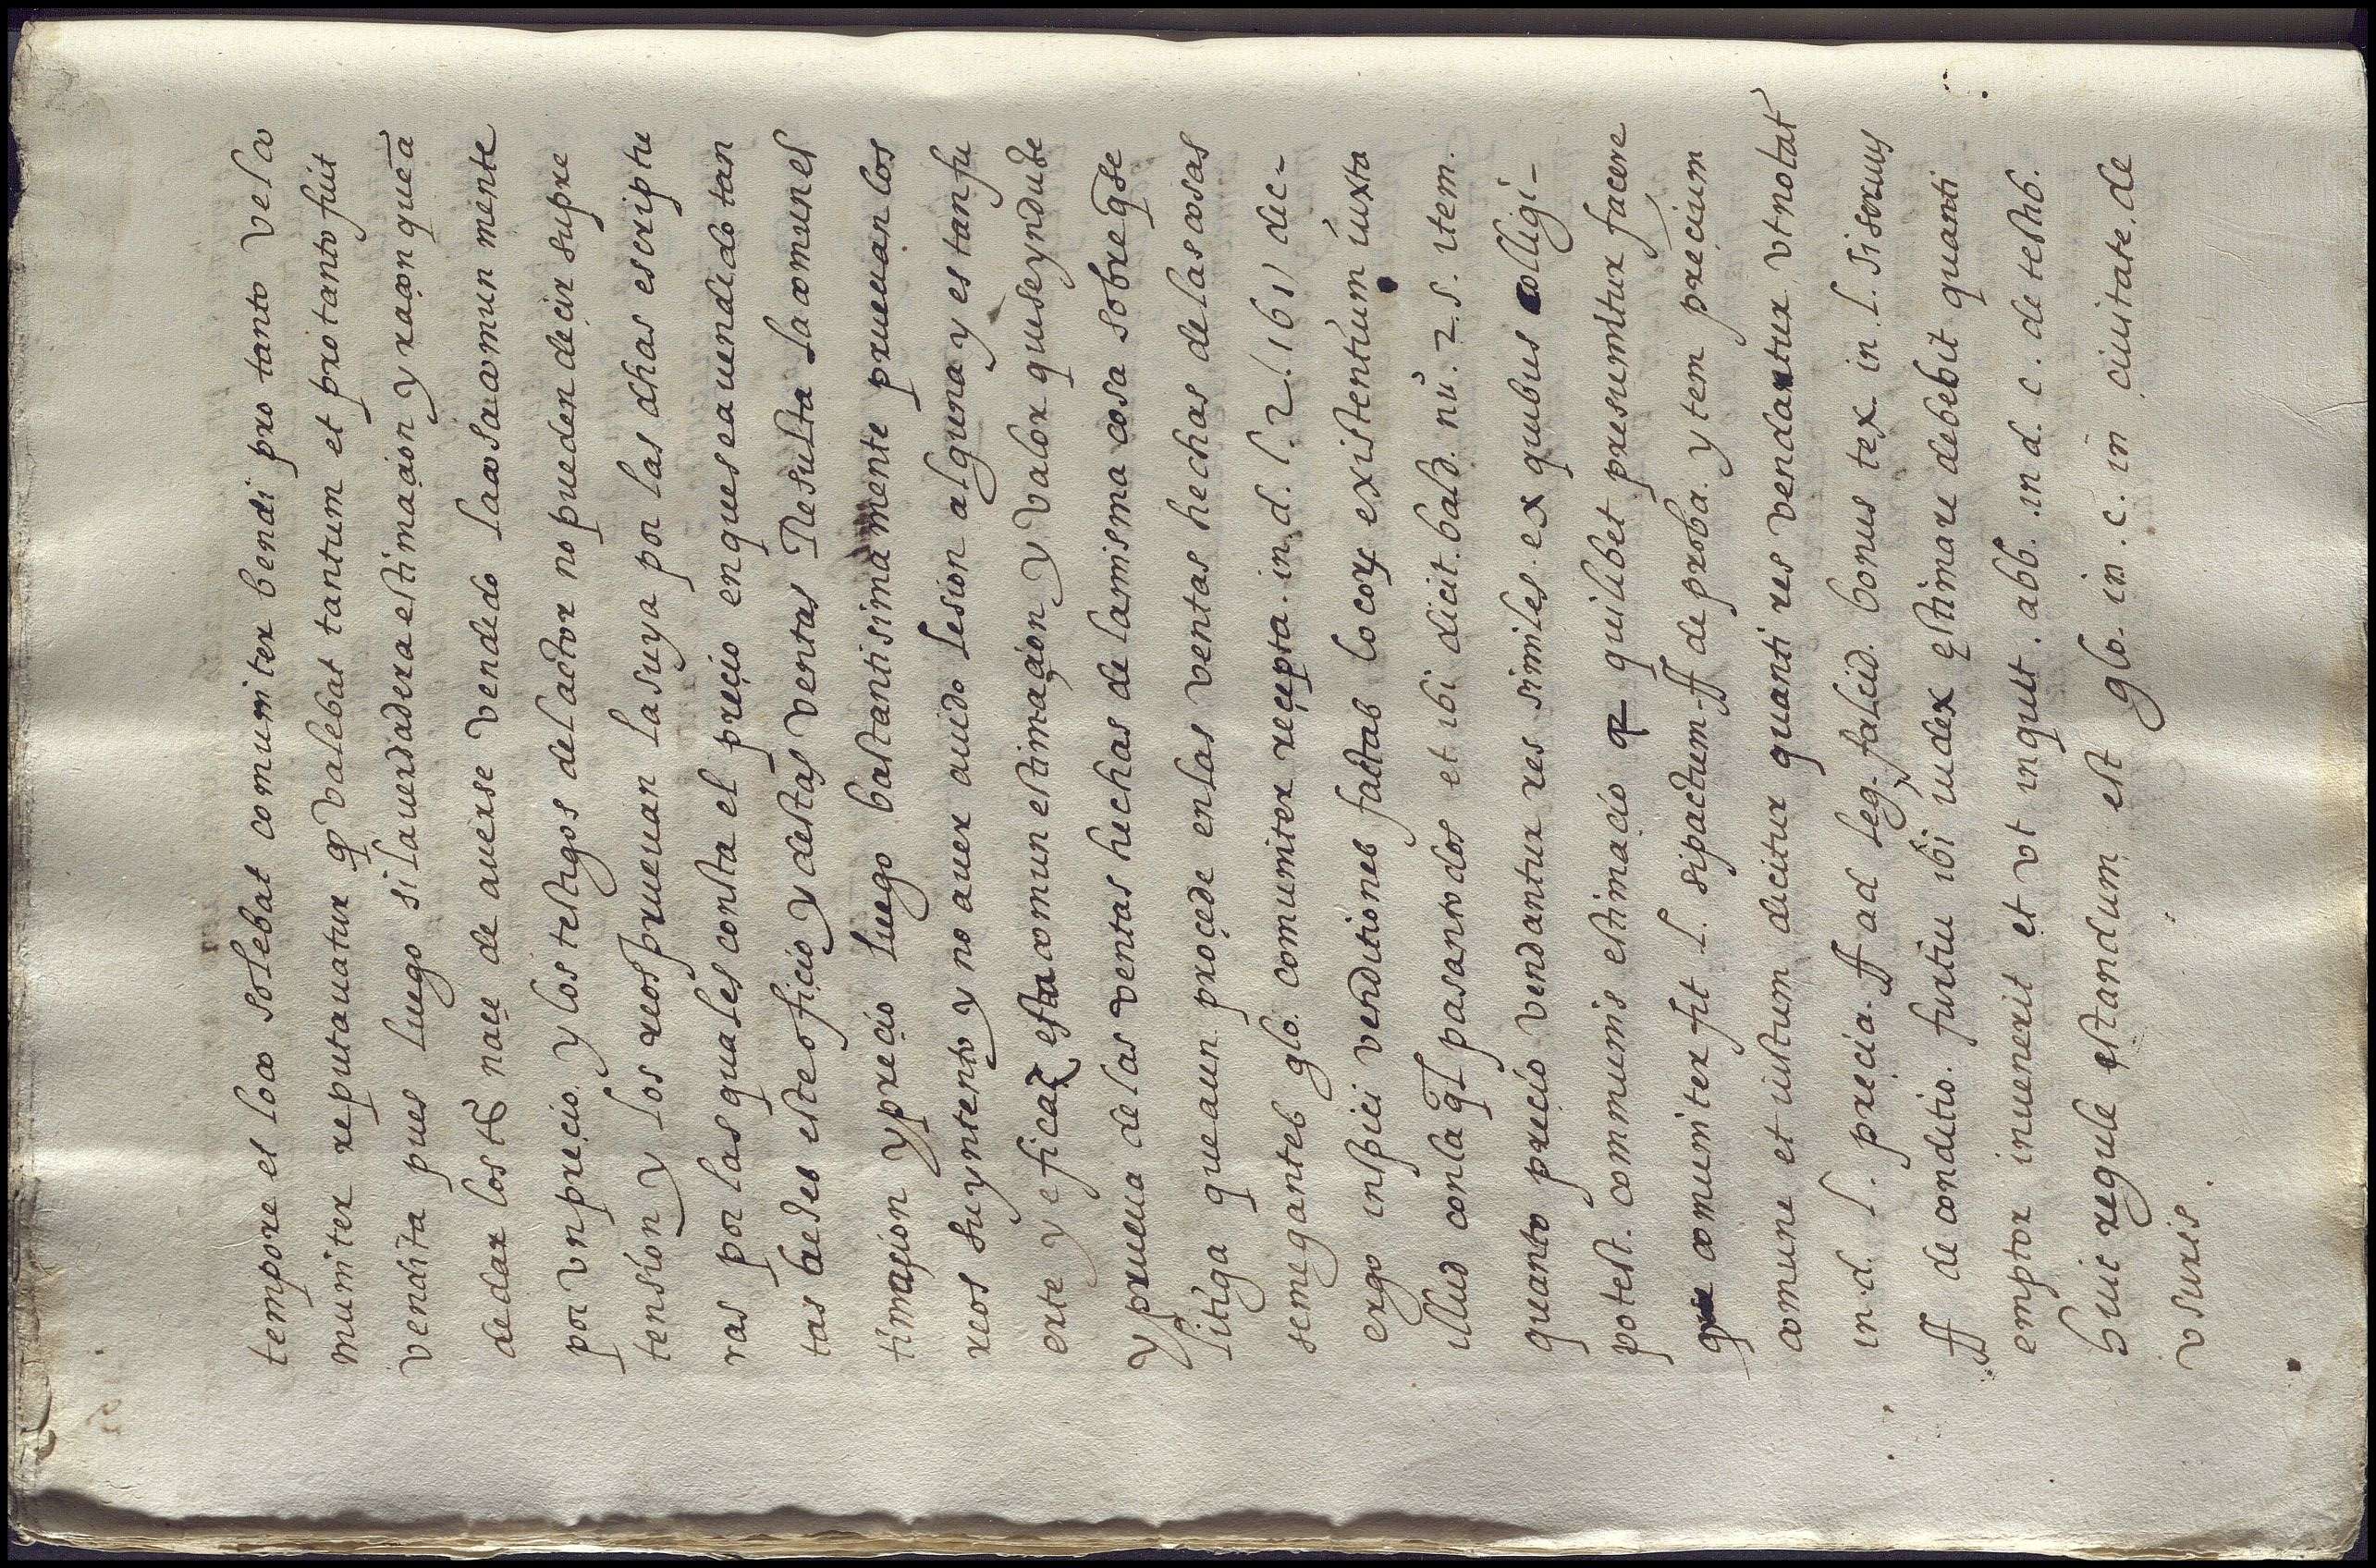 tempore et loco solebat comuniter bendi pro tanto vel co
muniter reputauatur q valebat tantum et pro tanto fuit
vendita pues luego si la uerdadera estimaçion y raçon que a
de dar los tos nace de auerse vendido la cosa comun mente
por un preçio y los testigos del actor no pueden deçir su pre
tension y los reos prueuan la suya por las dhas escriptu
ras por las quales consta el preçio en que se a uendido tan
tas bezes este ofiçio y destas ventas Resulta la comun es
timaçion y preçio luego bastantisimamente prueuan los
reos su yntento y no auer auido lesion alguna y es tan fu
erte y eficaz esta comun estimaçion y valor que se yndube
y prueua de las ventas hechas de la misma cosa sobre q se
litiga que aun proçede en las ventas hechas de las cosas
semejantes glo. comuniter reçepta. in d. l. 2. (161) dec-
ergo inspici venditiones factas locorum existentium iuxta
illud con la ql pasan todos et ibi dicit. bald. nu. 2. s. item.
quanto preçio vendantur res similes. ex quibus colligi-
potest. communis estimaçio q quilibet presumitur facere
que comuniter fit l. si pactum ff de proba. y tem preçium
comune et iustum dicitur quanti res vendantur vt notat
in. d. l. preçia. ff ad leg. falcid. bonus tex. in. l. si seruus
ff de conditio. furtiu ibi iudex estimare debebit quanti
emptor inuenerit et vt inquit. abb. in d. c. de testib.
huic regule standum est glo. in. c. in ciuitate. de
vsuris.